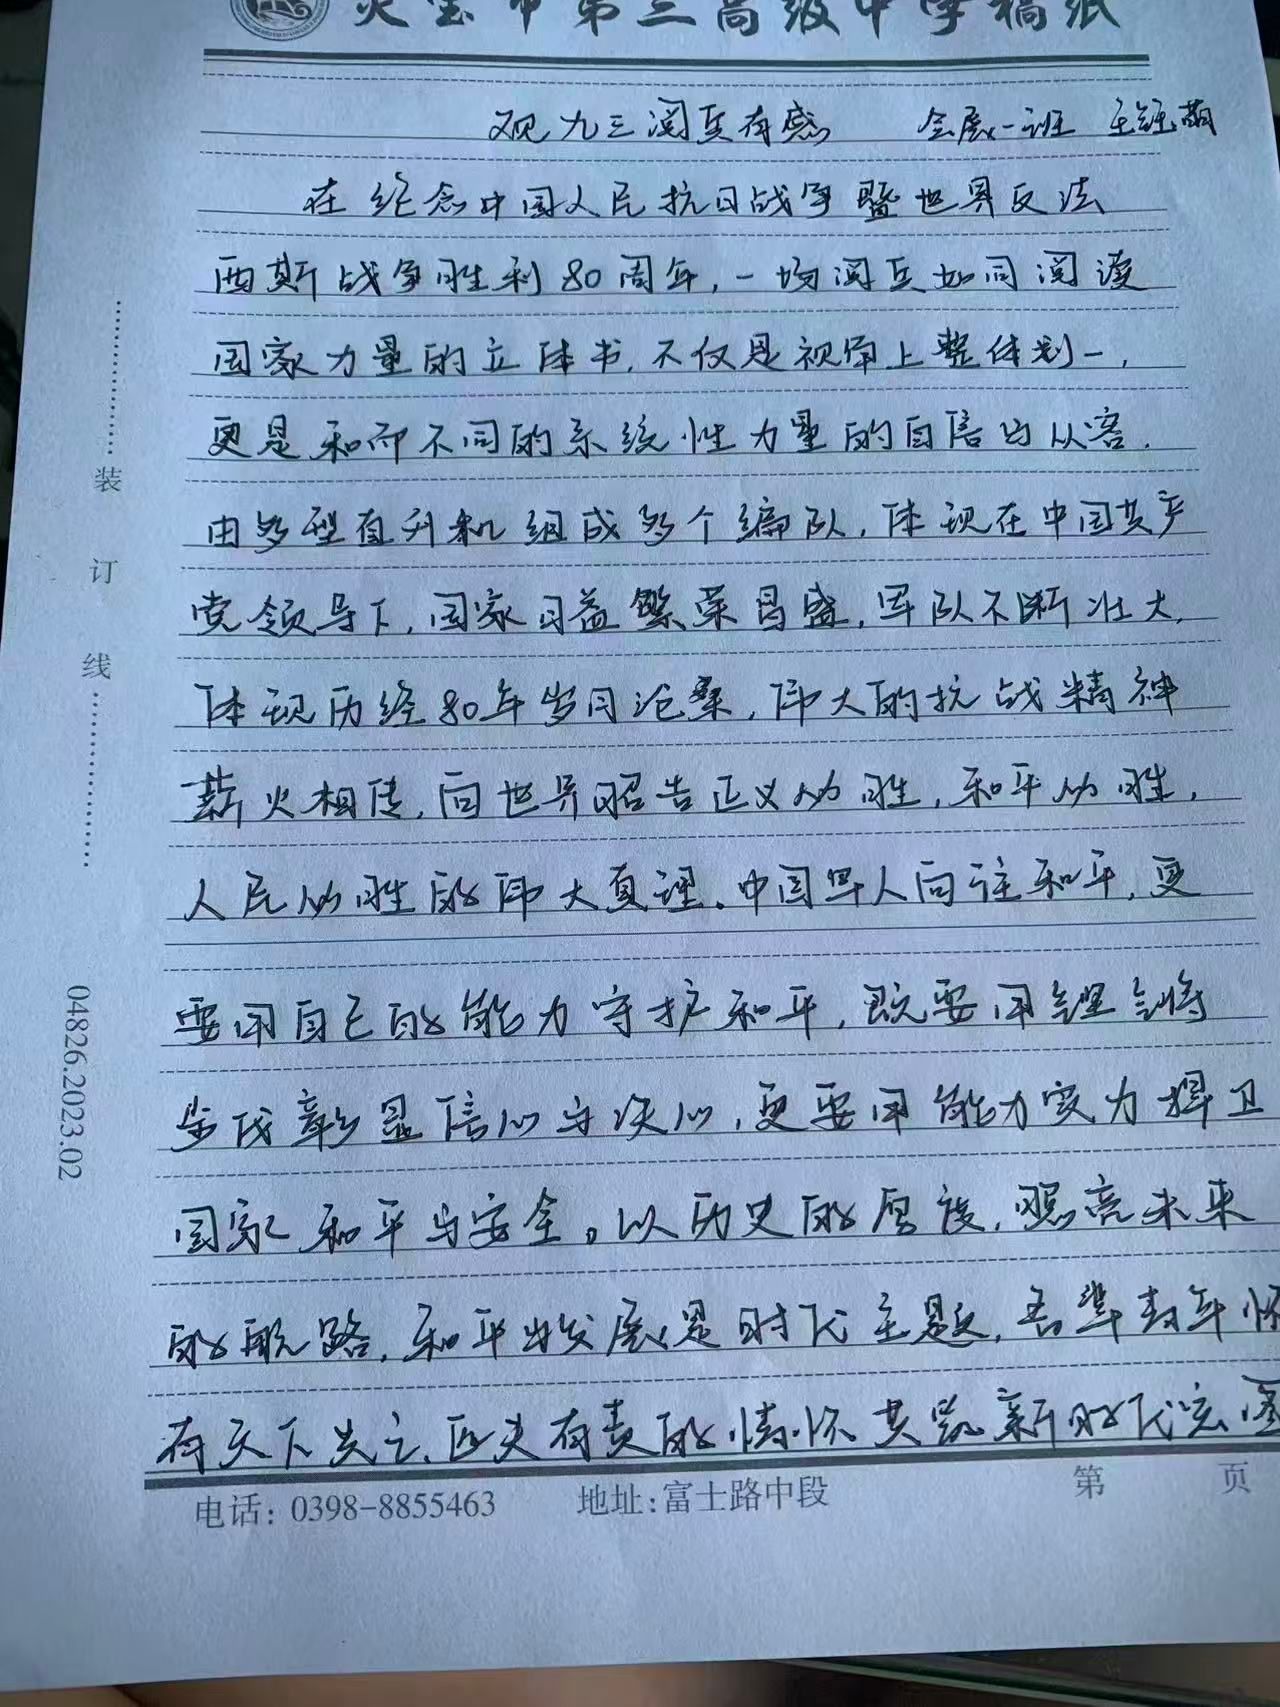 灵宝市第三高级中学稿纸
观九三阅兵有感 会展一班 王钰萌
在纪念中国人民抗日战争暨世界反法
西斯战争胜利80周年,一场阅兵如同阅读
国家力量的立体书,不仅是视角上整体划一,
更是和而不同的系统性力量的自信与从容.
由多型直升机组成多个编队,体现在中国共产
党领导下,国家日益繁荣昌盛,军队不断壮大,
体现历经80年岁月沧桑,伟大的抗战精神
薪火相传,向世界昭告正义必胜,和平必胜,
人民必胜的伟大真理。中国军人向往和平,更
要用自己的能力守护和平,既要用铿锵
步伐彰显信心与决心,更要用能力实力捍卫
国家和平与安全。以历史的厚度,照亮未来
的航路,和平与发展是时代主题,吾辈青年怀
有天下兴亡、匹夫有责的情怀共筑新时代宏图
装订线
04826.2023.02
电话: 0398-8855463 地址:富士路中段 第 页